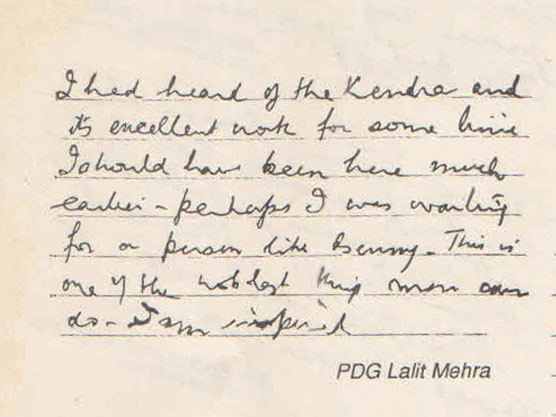 I had heard of the Kendra and
its excellent work for some time
I should have been here much
earlier - perhaps I was waiting
for a person like Benny - This is
one of the noblest thing man can
do - I am inspired
PDG Lalit Mehra